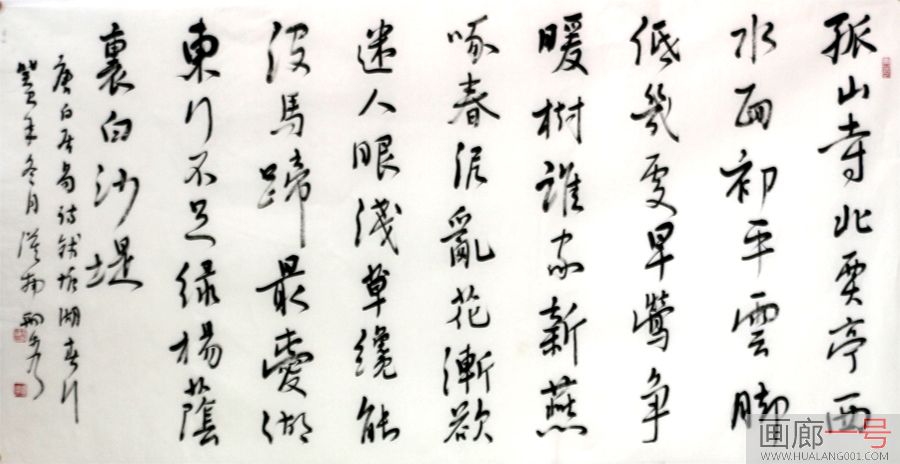 孤山寺北賈亭西
水面初平雲脚
低幾處早鶯争
暖樹誰家新燕
啄春泥亂花漸欲
迷人眼淺草纔能
没馬蹄最愛湖
東行不足緑楊蔭
裏白沙堤
唐白居易詩錢塘湖春行
癸巳年冬月
画廊一号
WWW.HUALANG001.COM